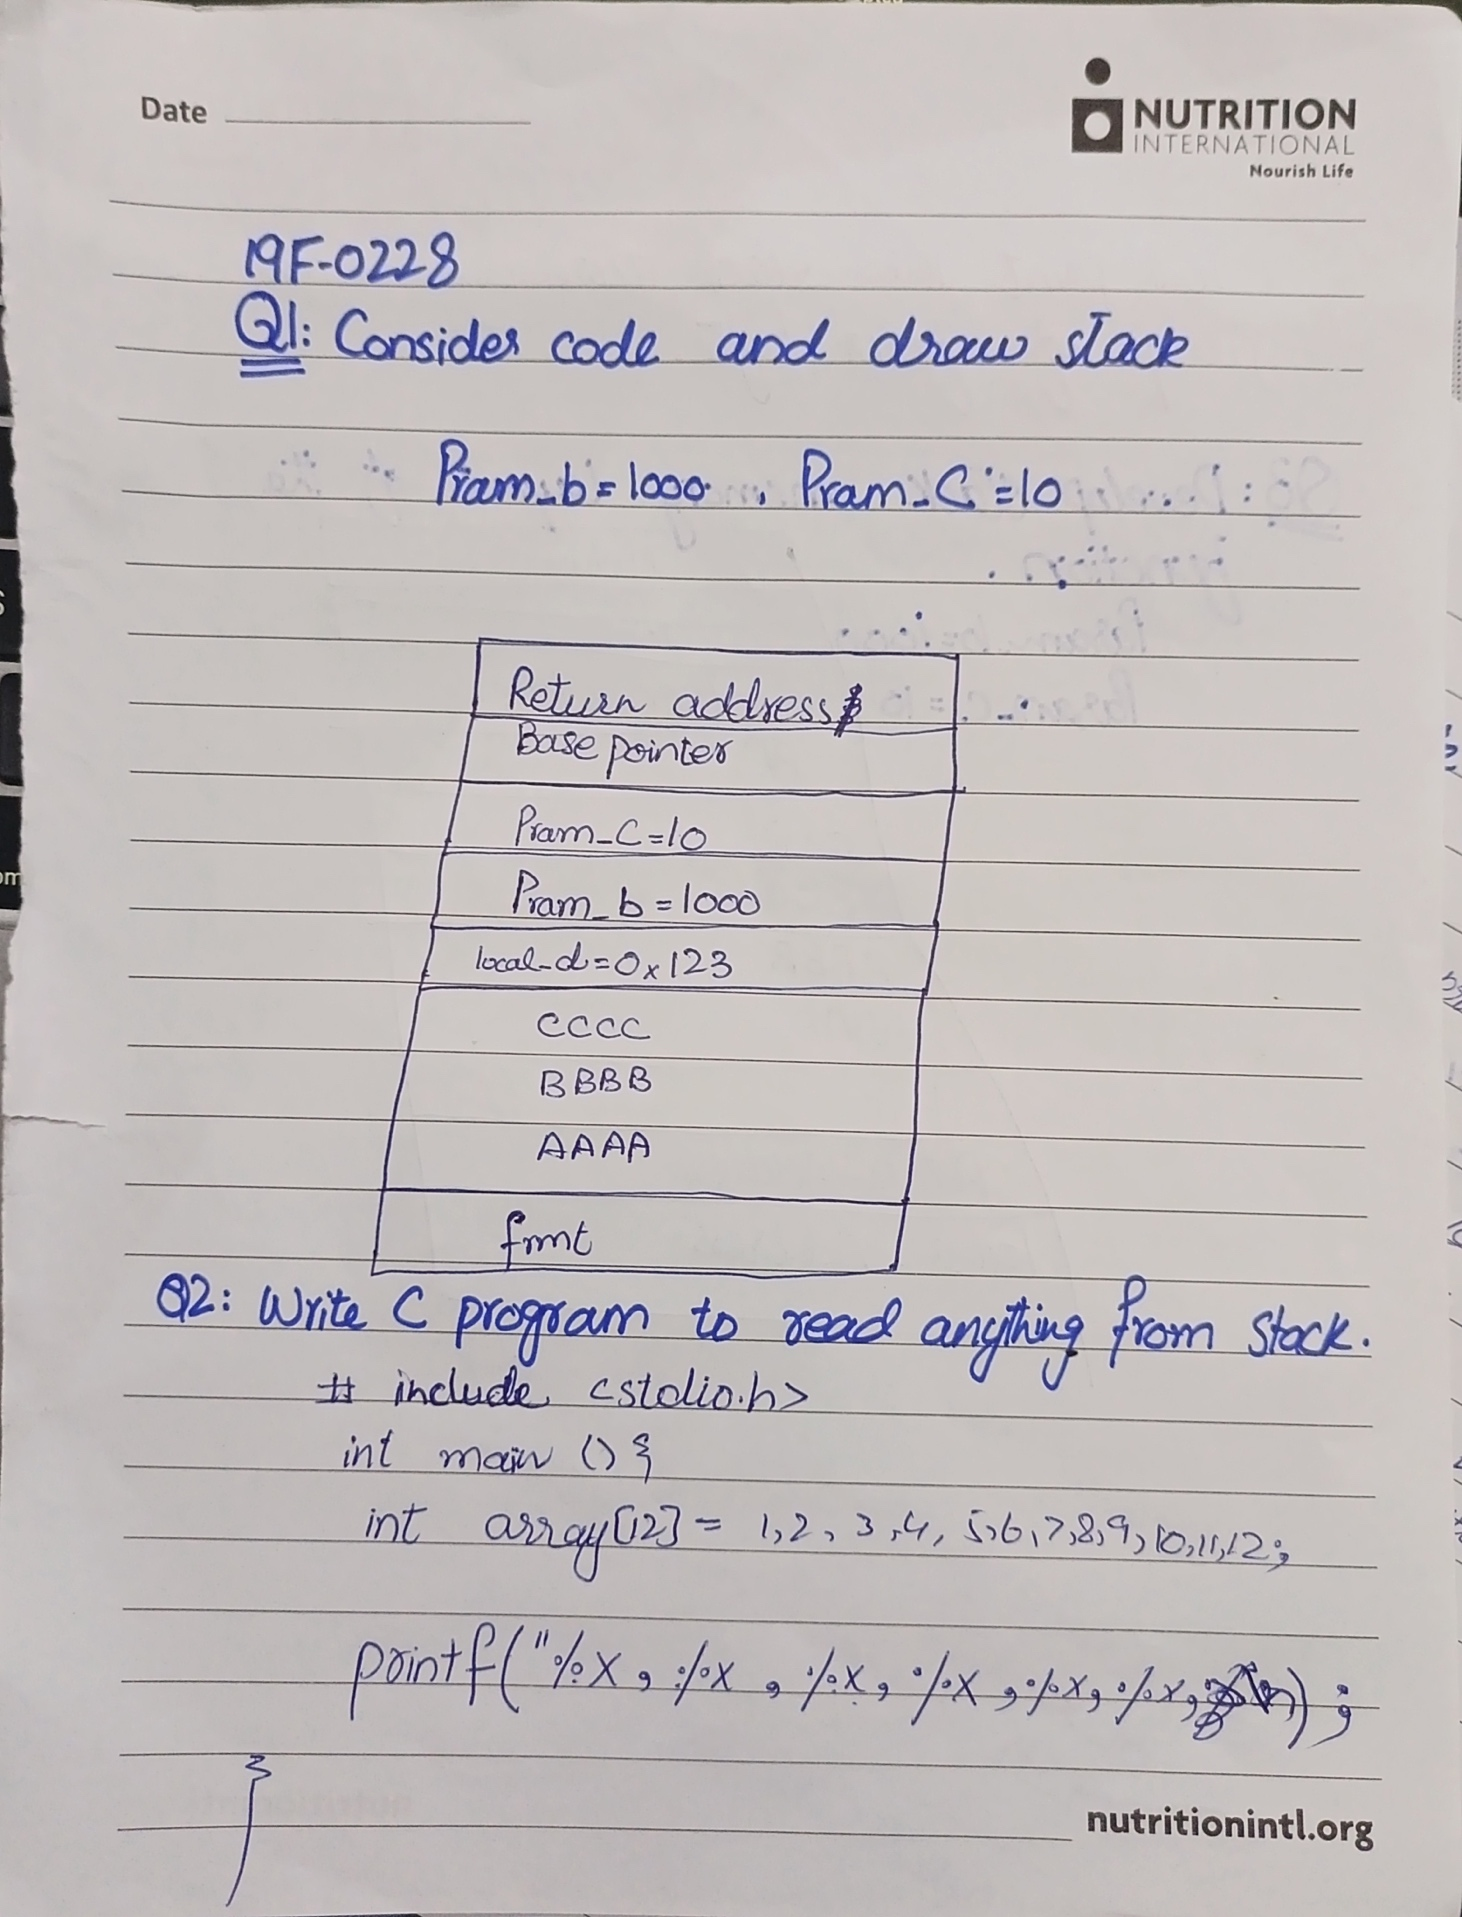 Date
NUTRITION
INTERNATIONAL
Nourish Life
19F-0228
Q1: Consider code and draw stack
Pram_b = 1000, Pram_C = 10
Return address
Base pointer
Pram_C = 10
Pram_b = 1000
local_d = 0x123
CCCC
BBBB
AAAA
fmnt
Q2: Write C program to read anything from stack.
# include <stdio.h>
int main () {
int array[12] = 1,2,3,4,5,6,7,8,9,10,11,12;
printf("%x, %x, %x, %x, %x, %x, );
}
nutritionintl.org